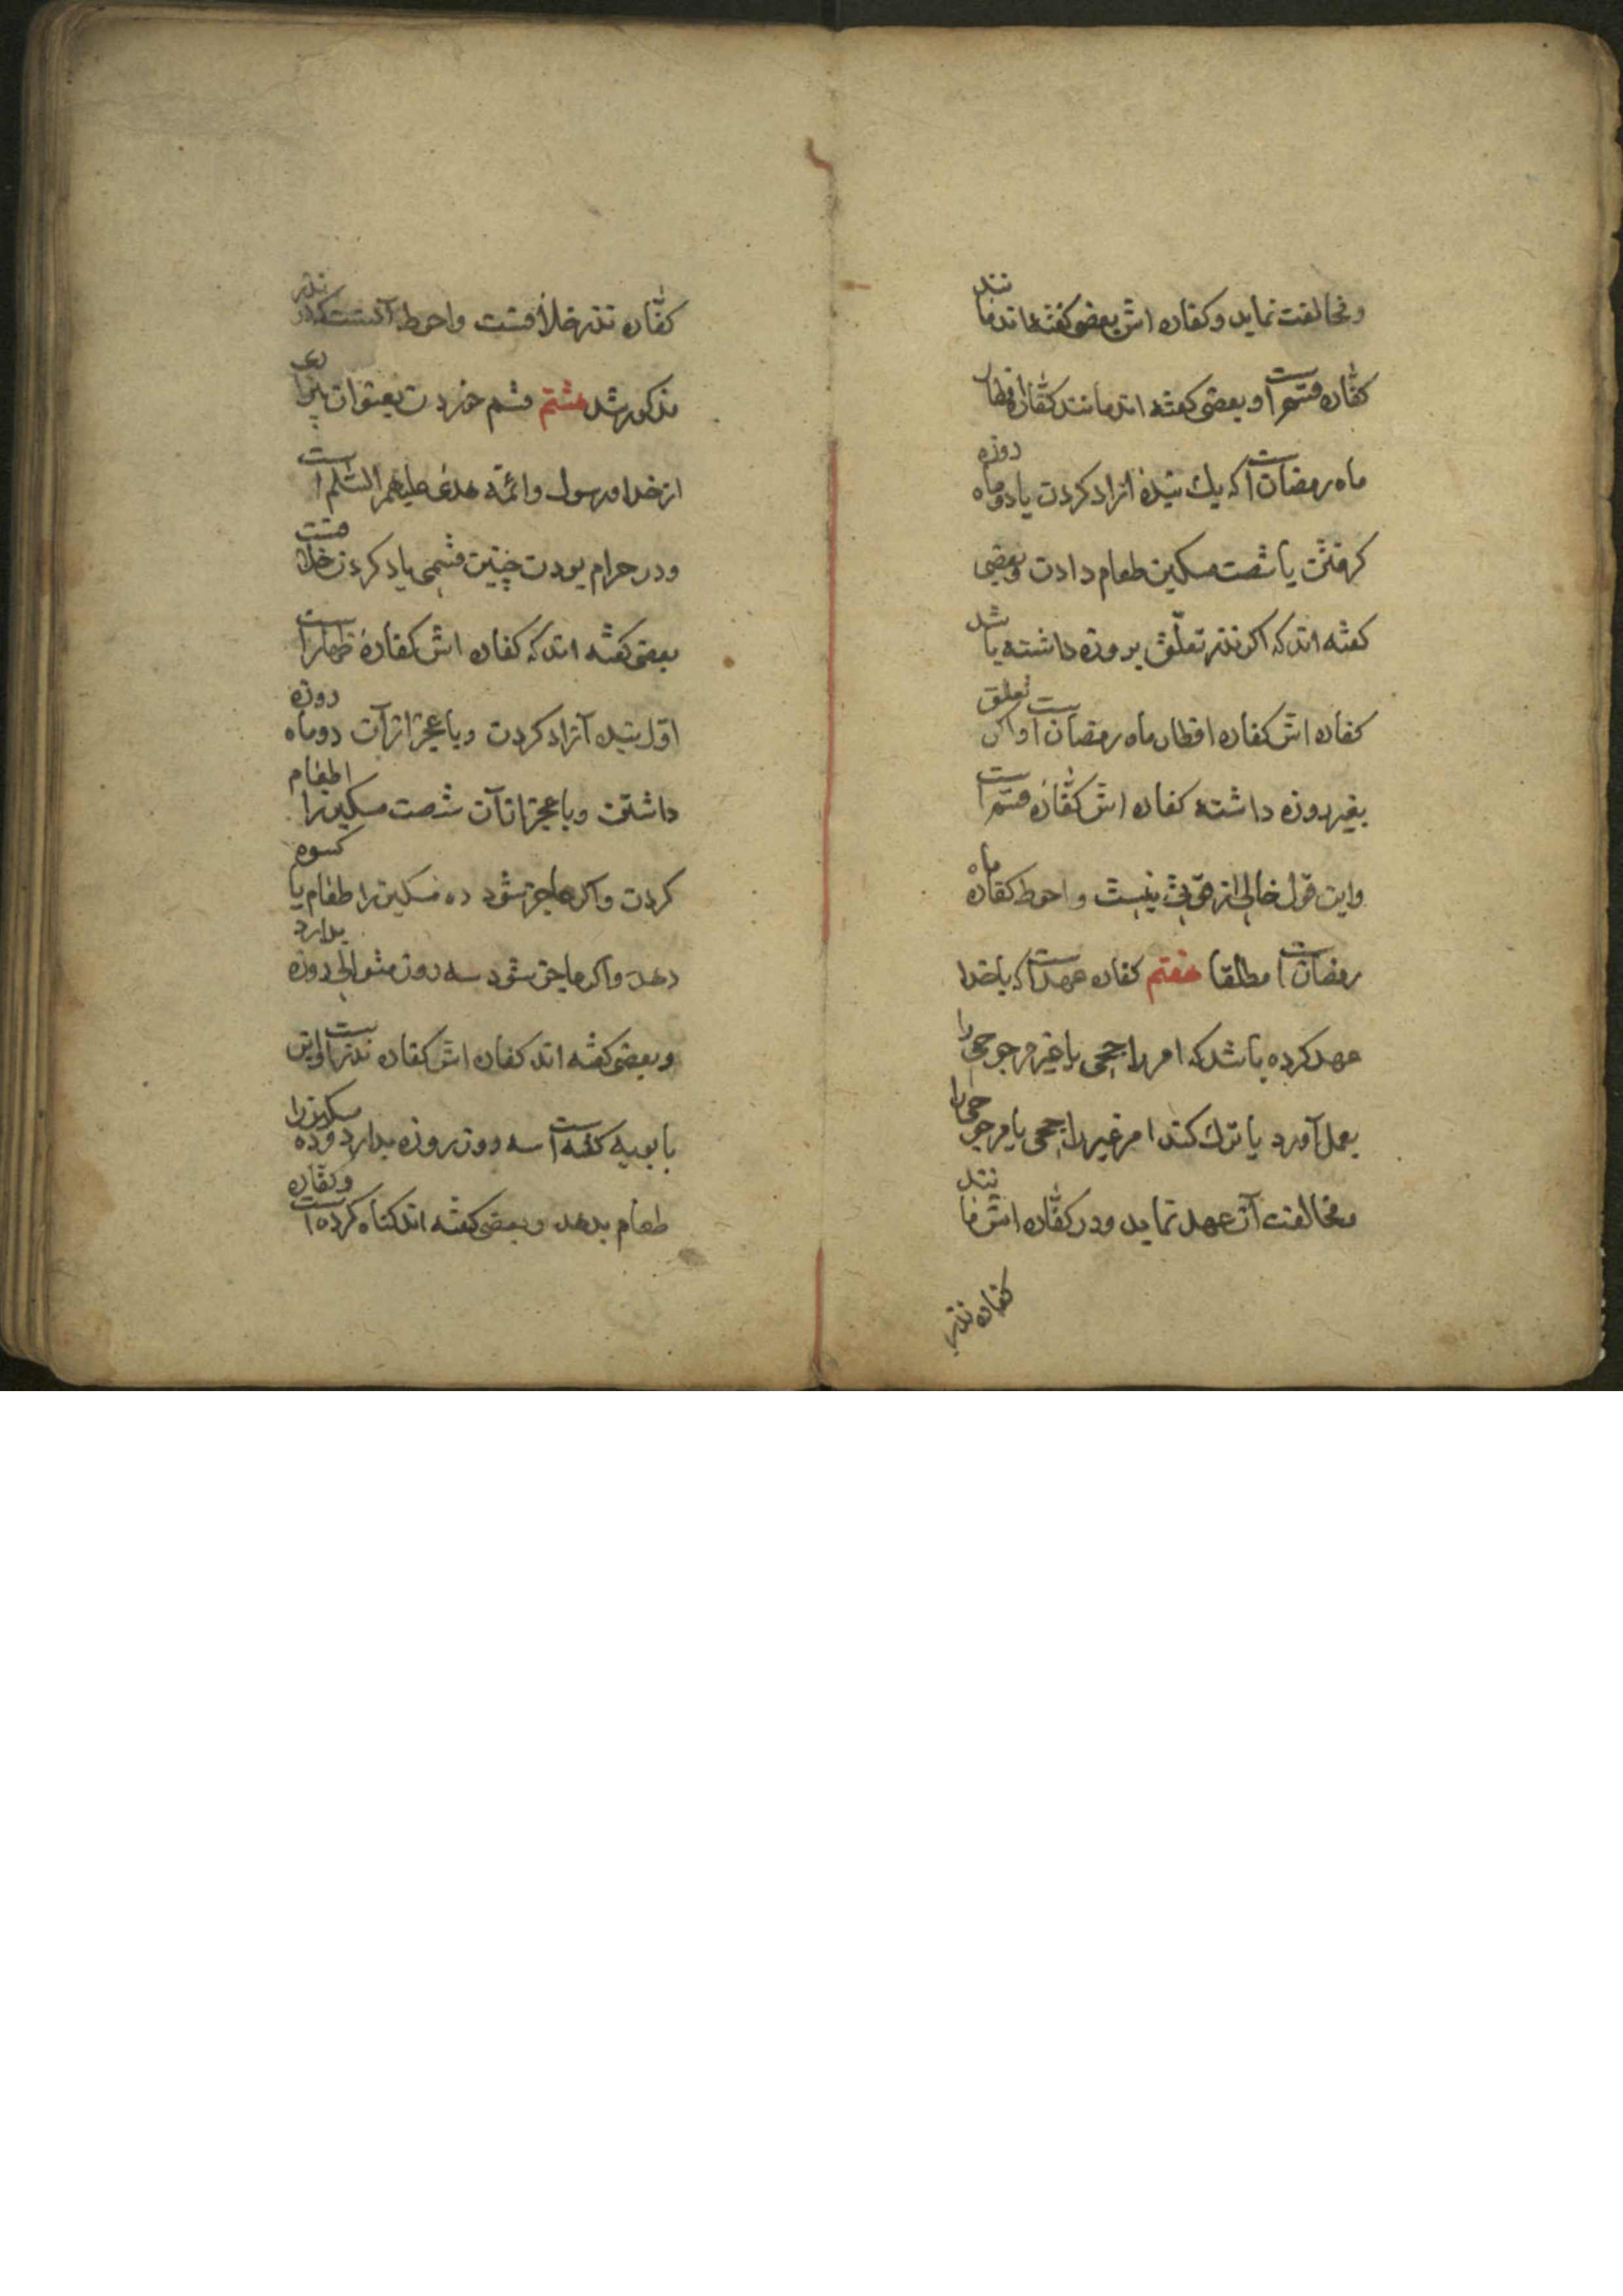 و مخالفت نماید و کفاره اش بعضی گفته‌اند مانند
کفّاره قسم است و بعضی کفته اند مانند کفّاره افطار
ماه رمضان است که یك بنده آزاد کردن یا دو ماه روزه
کرفتن یا شصت مسکین طعام دادن و بعضی
کفته اند که اکر نذر تعلّق بروزه داشته باشد
کفاره اش کفاره افطار ماه رمضان است و اکر تعلق
بغیر روزه داشته کفاره اش کفّاره قسم است
و این قول خالی از قوّتی نیست و احوط کفاره ماه
رمضان است مطلقا هفتم کفاره عهد است که با خدا
عهد کرده باشد که امر راجحی یا غیر مرجوحی را
بعمل آورد یا ترك کند امر غیر راجحی یا مرجوحی را
و مخالفت آن عهد نماید و در کفّاره اش مانند
کفاره نذر
کفّاره نذر خلافست و احوط آنست که در نذر
مذکور شد هشتم قسم خوردن بعنوان بیزاری
از خدا و رسول و ائمّه هدی علیهم السّلم است
و در حرام بودن چنین قسمی یاد کردن خلافست
بعضی کفته اند که کفاره اش کفارهٔ ظهار است
اوّل بنده آزاد کردن و با عجز از آن دو ماه روزه
داشتن و با عجز از آن شصت مسکین را اطعام
کردن و اکر عاجز شود ده مسکین را طعام یا کسوه
دهد و اکر عاجز شود سه روز متوالی روزه بدارد
و بعضی کفته اند کفاره اش کفاره نذر است و ابن
بابویه کفته است سه روز روزه بدارد و ده مسکین را
طعام بدهد و بعضی کفته اند کناه کرده است و کفّاره